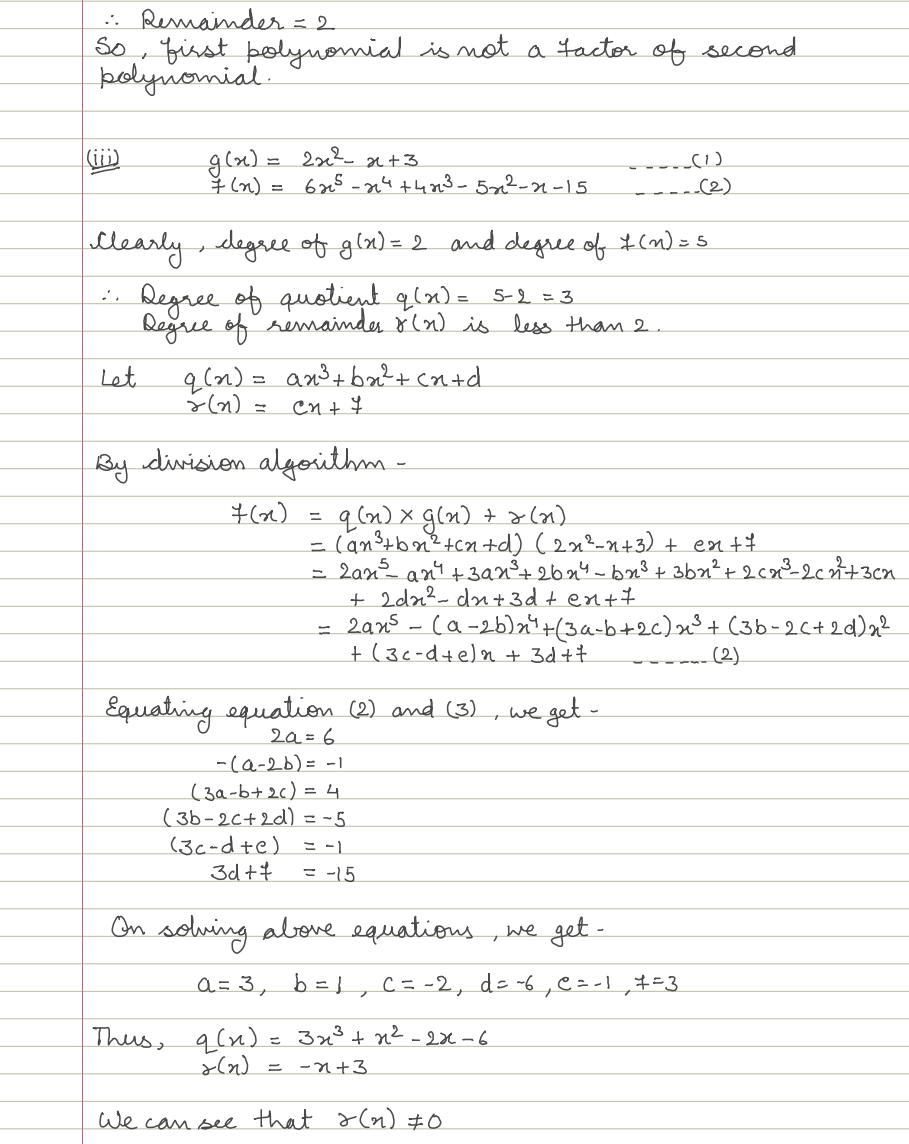 ∴ Remainder = 2
So, first polynomial is not a factor of second
polynomial.
(iii) g(x) = 2x² - x + 3 -----(1)
f(x) = 6x⁵ - x⁴ + 4x³ - 5x² - x - 15 -----(2)
Clearly, degree of g(x) = 2 and degree of f(x) = 5
∴ Degree of quotient q(x) = 5-2 = 3
Degree of remainder r(x) is less than 2.
Let q(x) = ax³ + bx² + cx + d
r(x) = ex + f
By division algorithm -
f(x) = q(x) × g(x) + r(x)
= (ax³+bx²+cx+d) (2x²-x+3) + ex + f
= 2ax⁵ - ax⁴ + 3ax³ + 2bx⁴ - bx³ + 3bx² + 2cx³ - 2cx² + 3cx
+ 2dx² - dx + 3d + ex + f
= 2ax⁵ - (a-2b)x⁴ + (3a-b+2c)x³ + (3b-2c+2d)x²
+ (3c-d+e)x + 3d+f ------(2)
Equating equation (2) and (3), we get -
2a = 6
-(a-2b) = -1
(3a-b+2c) = 4
(3b-2c+2d) = -5
(3c-d+e) = -1
3d+f = -15
On solving above equations, we get -
a = 3, b = 1, c = -2, d = -6, e = -1, f = 3
Thus, q(x) = 3x³ + x² - 2x - 6
r(x) = -x + 3
We can see that r(x) ≠ 0